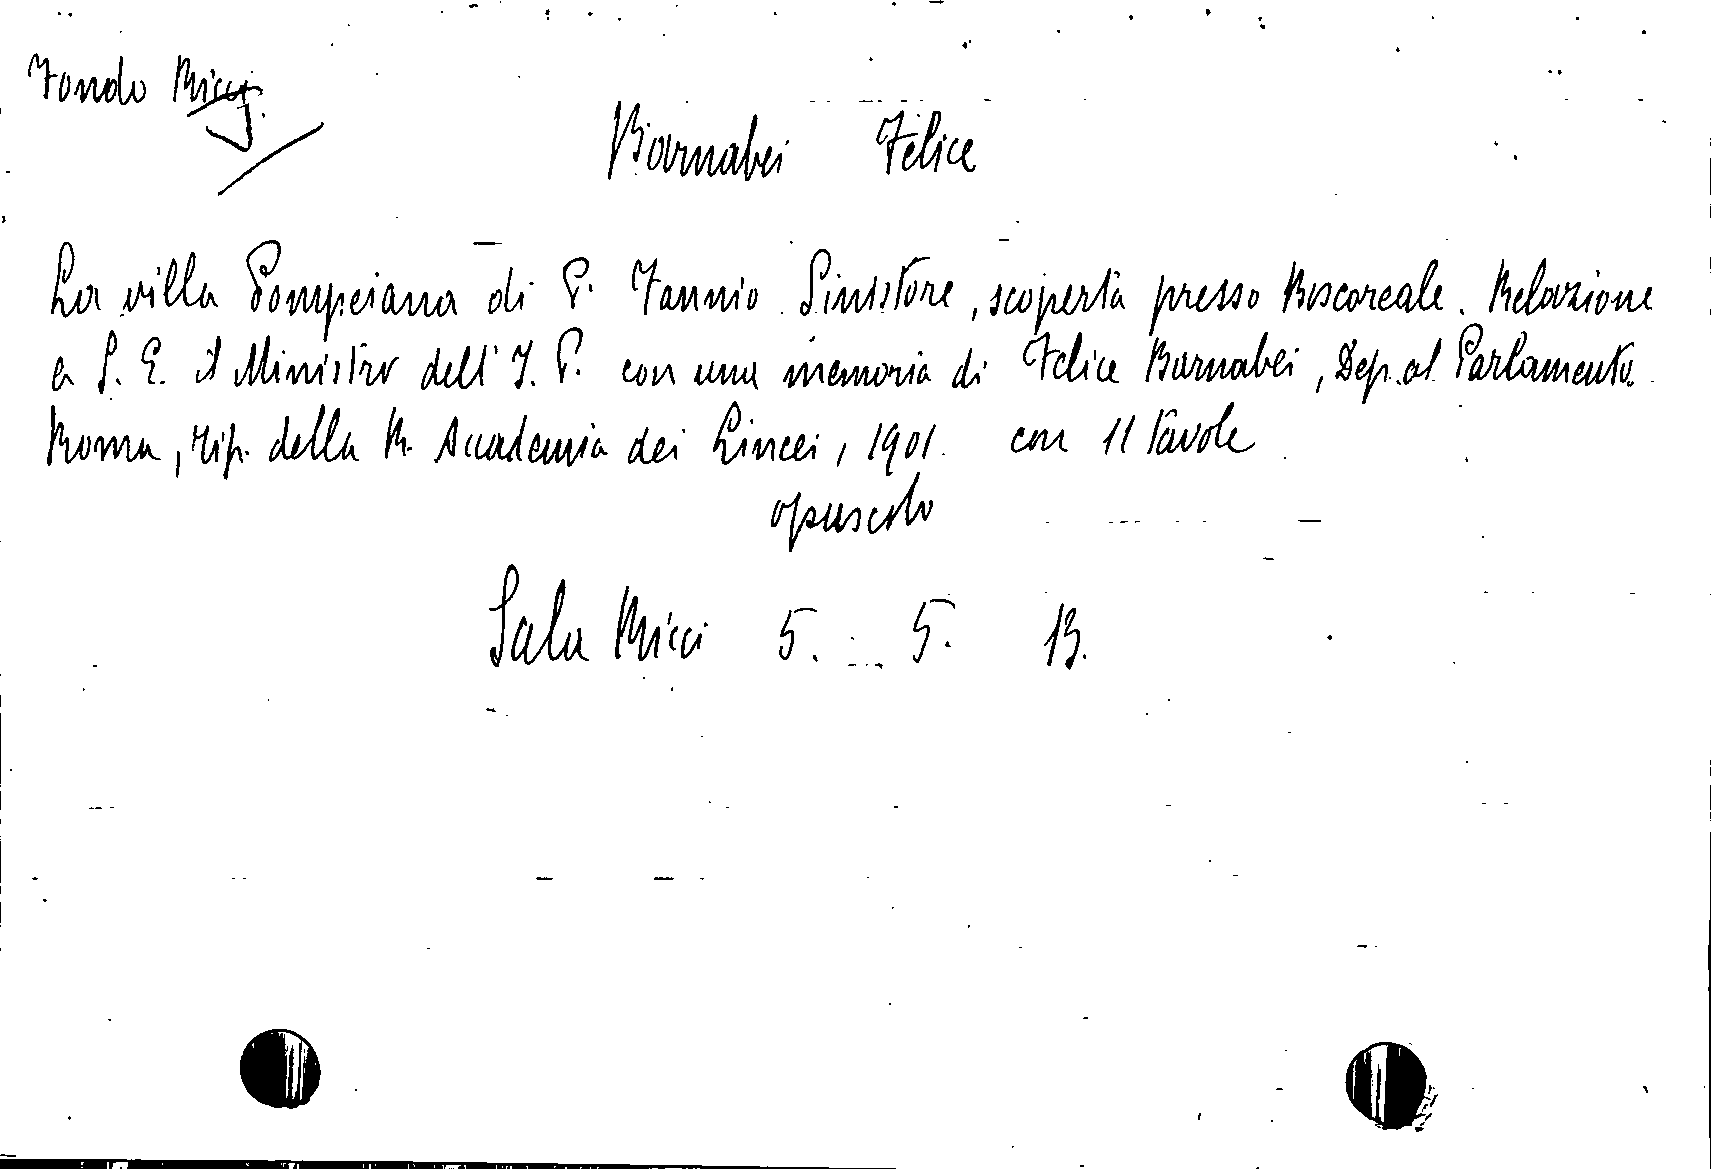 Fondo Ricci
Barnabei Felice
La villa Pompeiana di P. Fannio Sinistore, scoperta presso Boscoreale. Relazione
a S. E. il Ministro dell' I. P. con una memoria di Felice Barnabei, Dep. al Parlamento.
Roma, tip. della R. Accademia dei Lincei, 1901. con 11 tavole
opuscolo
Sala Ricci 5. 5. 13.